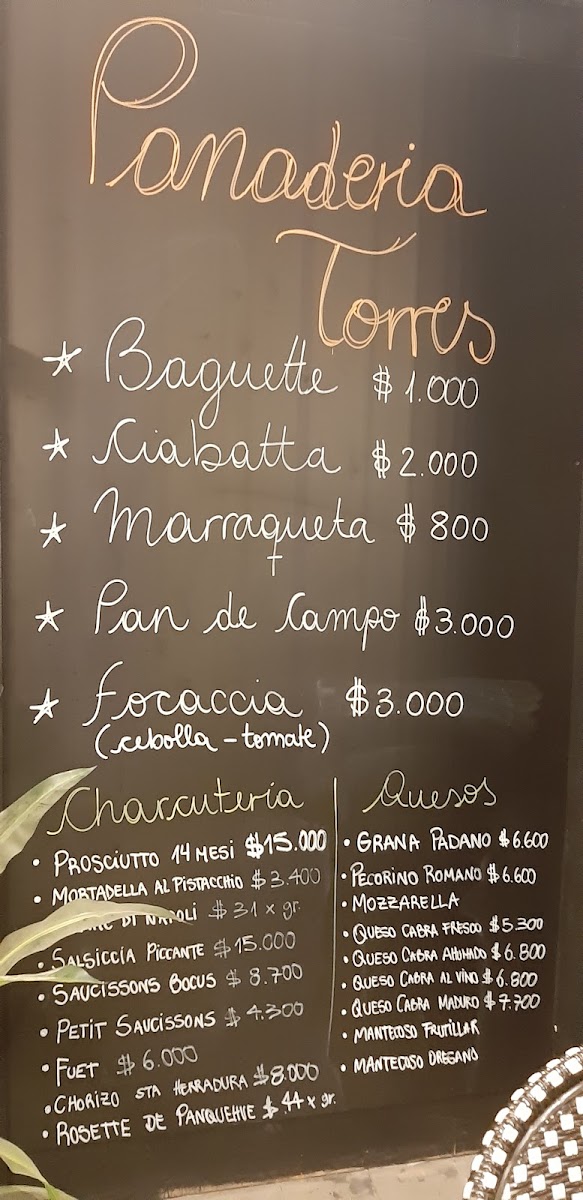 Panaderia
Torres
* Baguette $1.000
* Ciabatta $2.000
* Marraqueta $800
* Pan de Campo $3.000
* Focaccia $3.000
(cebolla - tomate)
Charcutería
• PROSCIUTTO 14 MESI $15.000
• MORTADELLA AL PISTACCHIO $3.400
DI NAPOLI $31 x gr.
• SALSICCIA PICCANTE $15.000
• SAUCISSONS BOCUS $8.700
• PETIT SAUCISSONS $4.300
• FUET $6.000
• CHORIZO STA HERRADURA $8.000
• ROSETTE DE PANQUEHVE $44 x gr.
Quesos
• GRANA PADANO $6.600
• PECORINO ROMANO $6.600
• MOZZARELLA
• QUESO CABRA FRESCO $5.300
• QUESO CABRA AHUMADO $6.800
• QUESO CABRA AL VINO $6.800
• QUESO CABRA MADURO $7.700
• MANTECOSO FRUTILLAR
• MANTECOSO OREGANO